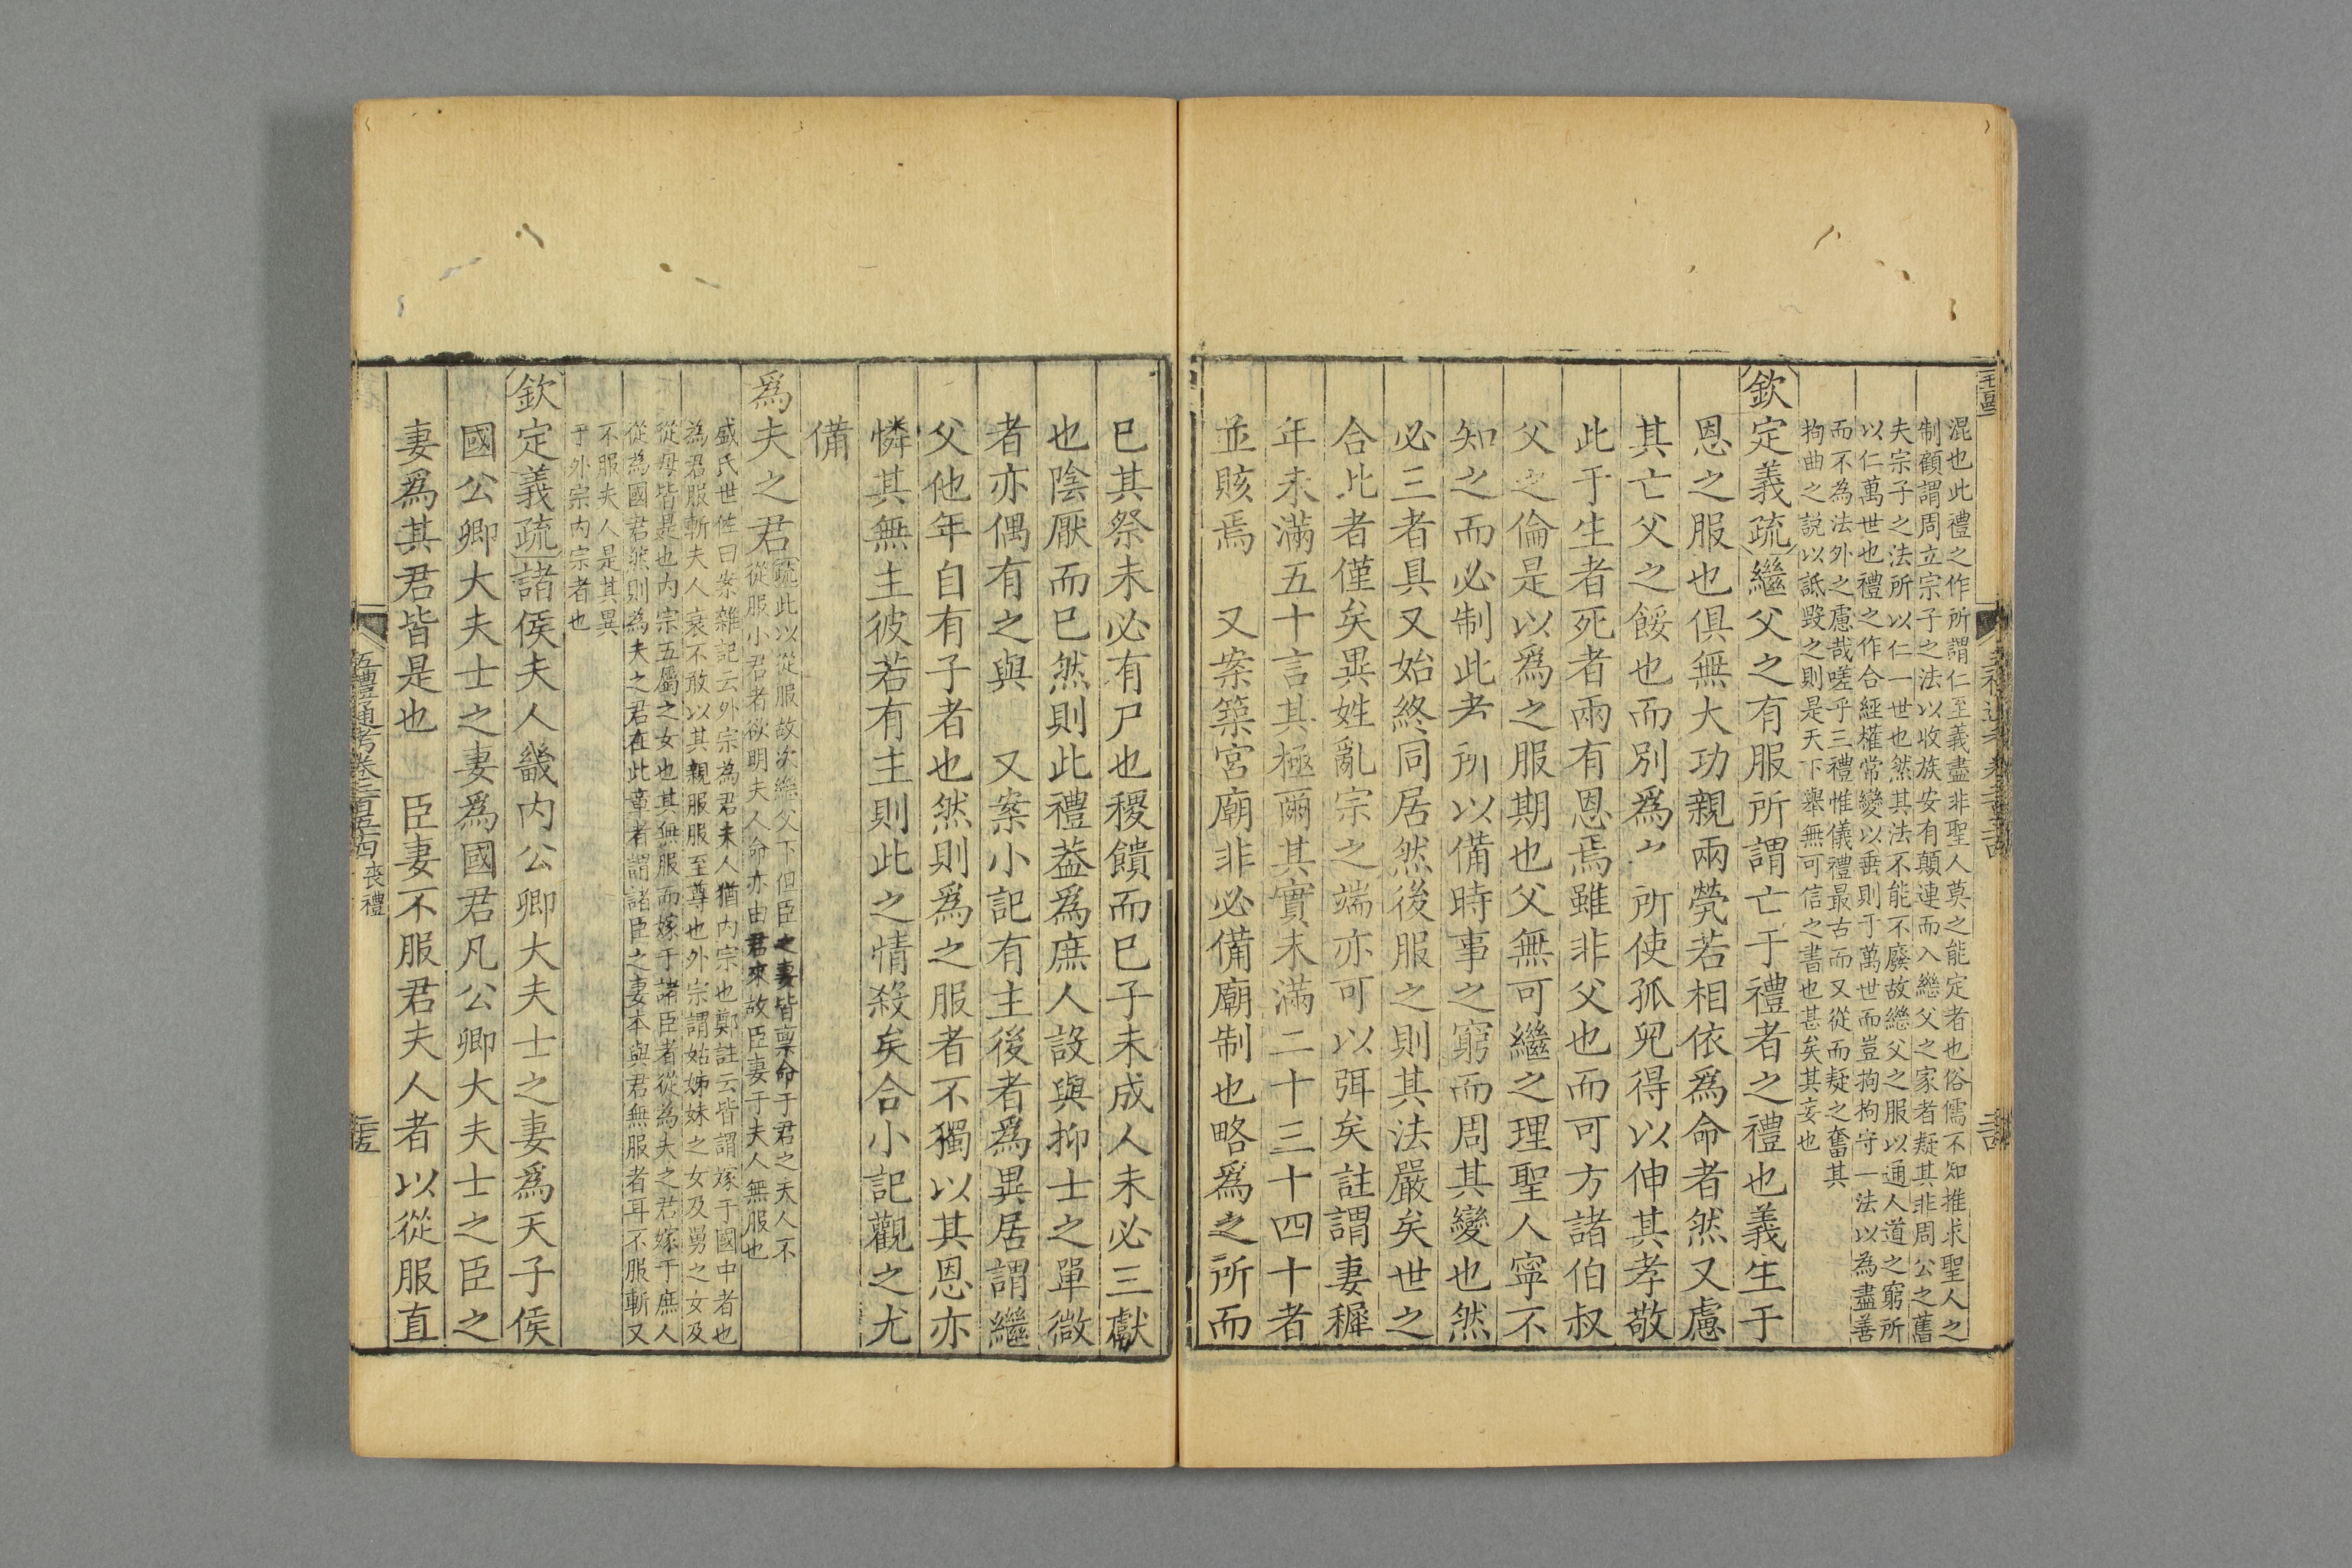 混也此禮之作所謂仁至義盡非聖人莫之能定者也俗儒不知推求聖人之
制顧謂周立宗子之法以收族安有顛連而入繼父之家者疑其非周公之舊
夫宗子之法所以仁一世也然其法不能不廢故繼父之服以通人道之窮所
以仁萬世也禮之作合經權常變以垂則于萬世而豈拘拘守一法以為盡善
而不為法外之慮哉嗟乎三禮惟儀禮最古而又從而疑之奮其
拘曲之説以詆毀之則是天下舉無可信之書也甚矣其妄也
欽定義疏繼父之有服所謂亡于禮者之禮也義生于
恩之服也俱無大功親兩煢若相依爲命者然又慮
其亡父之餒也而別爲所使孤兒得以伸其孝敬
此于生者死者兩有恩焉雖非父也而可方諸伯叔
父之倫是以爲之服期也父無可繼之理聖人寧不
知之而必制此者所以備時事之窮而周其變也然
必三者具又始終同居然後服之則其法嚴矣世之
合比者僅矣異姓亂宗之端亦可以弭矣註謂妻穉
年未滿五十言其極爾其實未滿二十三十四十者
並賅焉　又案築宮廟非必備廟制也略爲之所而
已其祭未必有尸也稷饋而已子未成人未必三獻
也陰厭而已然則此禮葢爲庶人設與抑士之單微
者亦偶有之與　又案小記有主後者爲異居謂繼
父他年自有子者也然則爲之服者不獨以其恩亦
憐其無主彼若有主則此之情殺矣合小記觀之尤
備
爲夫之君疏此以從服故次繼父下但臣之妻皆禀命于君之夫人不
從服小君者欲明夫人命亦由君來故臣妻于夫人無服也
盛氏世佐曰案雜記云外宗為君夫人猶内宗也鄭註云皆謂嫁于國中者也
為君服斬夫人衰不敢以其親服服至尊也外宗謂姑姊妹之女及舅之女及
從母皆是也内宗五屬之女也其無服而嫁于諸臣者從為夫之君嫁于庶人
從為國君然則為夫之君在此章者謂諸臣之妻本與君無服者耳不服斬又
不服夫人是其異
于外宗内宗者也
欽定義疏諸侯夫人畿内公卿大夫士之妻爲天子侯
國公卿大夫士之妻爲國君凡公卿大夫士之臣之
妻爲其君皆是也　臣妻不服君夫人者以從服直
五禮通考卷二百五十四　喪禮